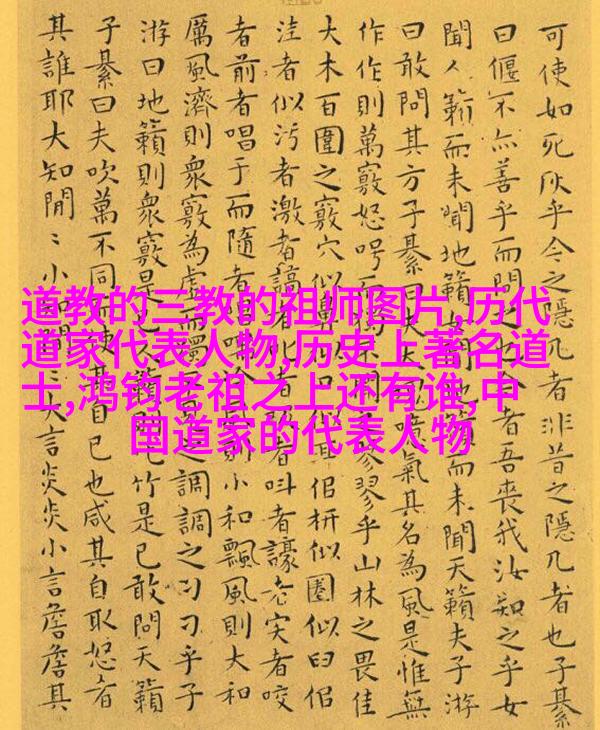 可使如死灰乎今之隱几者非昔之隱几者也子綦
曰偃不亦善乎而問之者吾喪我汝知之乎女
聞人籟而未聞地籟籟而未聞天籟夫子游
曰敢問其方子綦曰夫大噫氣其名為風是惟無
作作則萬竅怒呺而獨不聞之翏翏乎山林之畏佳
大木百圍之竅穴似鼻佀枅似圈似臼佀
洼者似污者激者謞者叫者譹者宎者咬
者前者唱于而隨者唱則小和飄風則大和
厲風濟則眾竅為虛而調調之刁刁乎子
游曰地籟則眾竅是已竹是已敢問天籟
子綦曰夫吹萬不同而使其自已也咸其自取怒者
其誰耶大知閒〻小閒〻大言炎炎小言詹詹其
道教的三教的祖师图片,历代
道家代表人物,历史上著名道
士,鸿钧老祖之上还有谁,中
国道家的代表人物